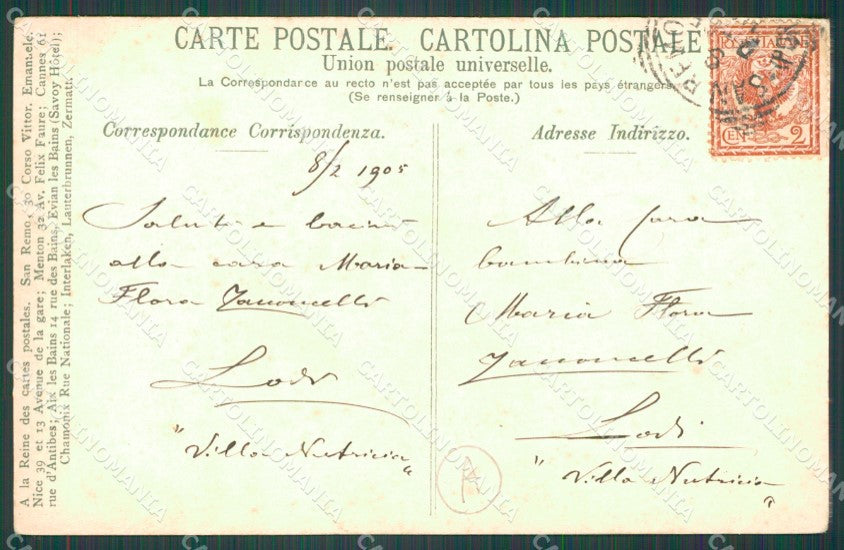 CARTE POSTALE. CARTOLINA POSTALE
Union postale universelle.
La Correspondance au recto n'est pas acceptée par tous les pays étrangers
(Se renseigner à la Poste.)
Correspondance Corrispondenza.
8/2 1905
Saluti e bacini
alla cara Maria-
Flora Zanoncelli
Lodi
"Villa Nutricia"
Adresse Indirizzo.
Alla Cara
bambina
Maria Flora
Zanoncelli
Lodi
"Villa Nutricia"
CEN 2
A la Reine des cartes postales. San Remo, 30 Corso Vittor. Emanuele.
Nice 39 et 13 Avenue de la gare; Menton 32 Av. Felix Faure; Cannes 61
rue d'Antibes; Aix les Bains 14 rue des Bains, Evian les Bains (Savoy Hôtel);
Chamonix Rue Nationale; Interlaken, Lauterbrunnen, Zermatt.
CARTOLINOMANIA